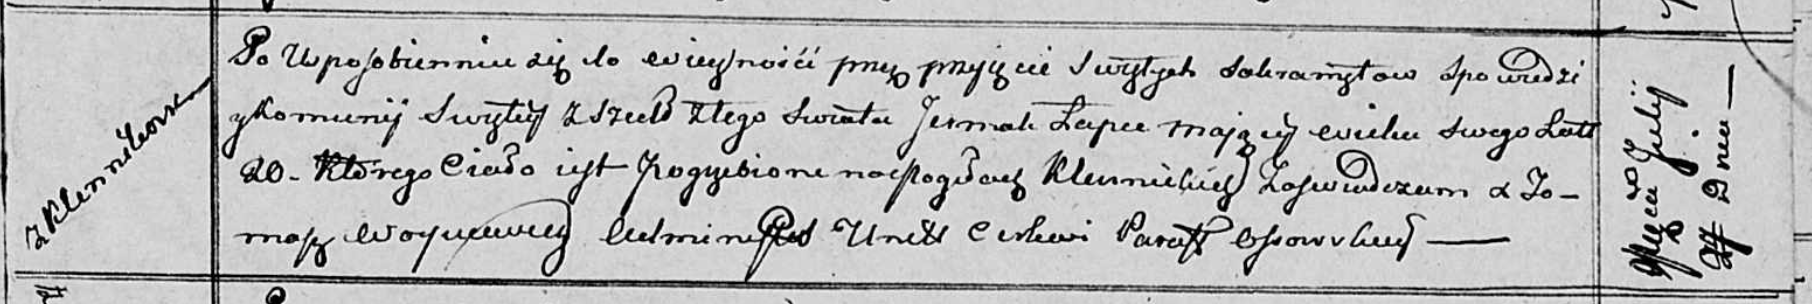 z Klennikow
Po Uposobienniu się do wieczności przez przyięcie Swiętych Sakramętow Spowiedzi
y Komunij Swiętey zszedł ztego Swiata Jermak Łapec maiący wieku swego Latt
20. Ktorego Ciało iest Pogrzebione na Mogiłach Klennickich Zaswiadczam X To-
masz Woyniewicz Administ Unitt Cerkwi Paraff Ossowskiey
Męca Julij
Dnia